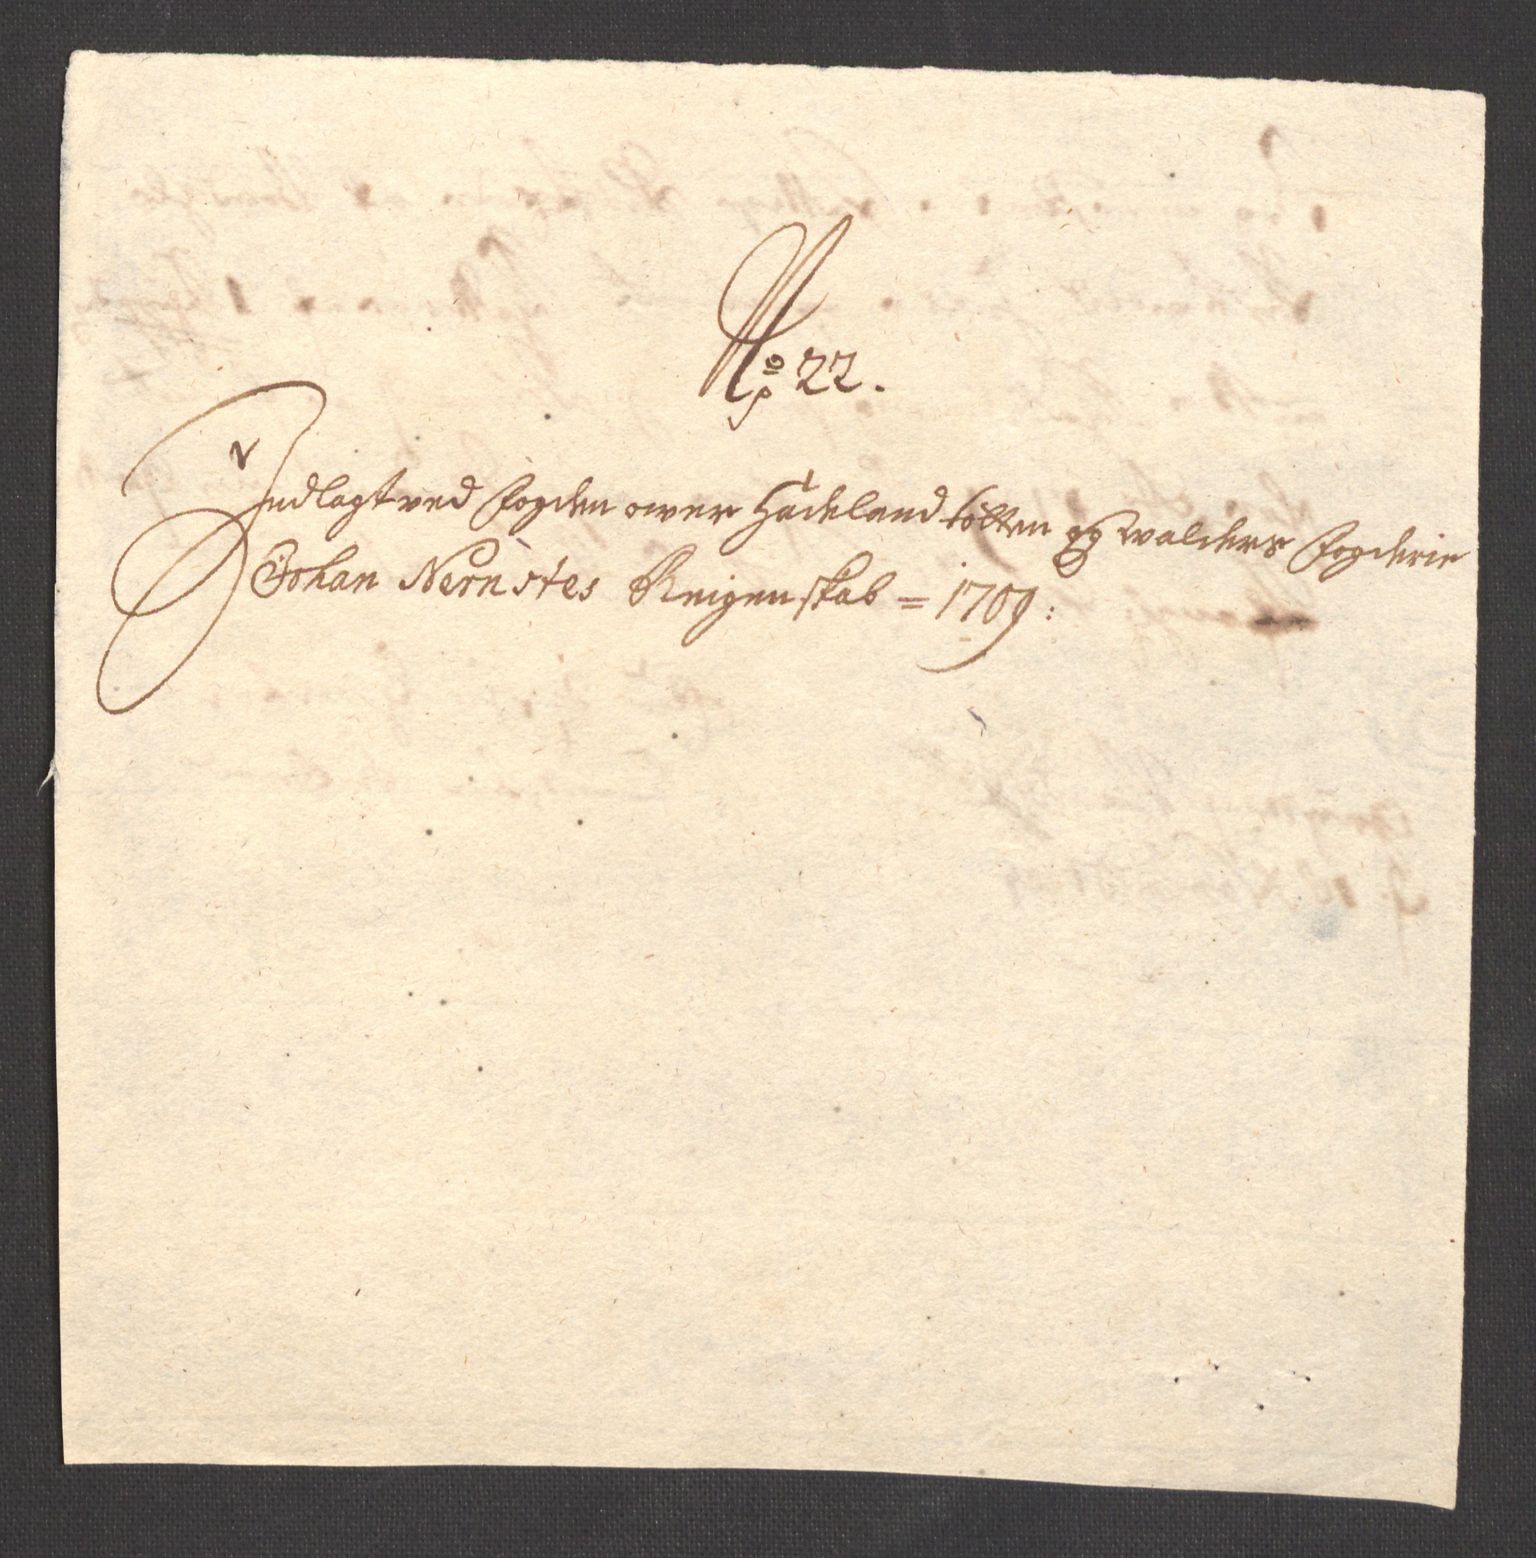 No 22.
Indlagt ved fogden ower Hadeland totten og walders fogderie
Johan Nernstes Reigenskab = 1709: